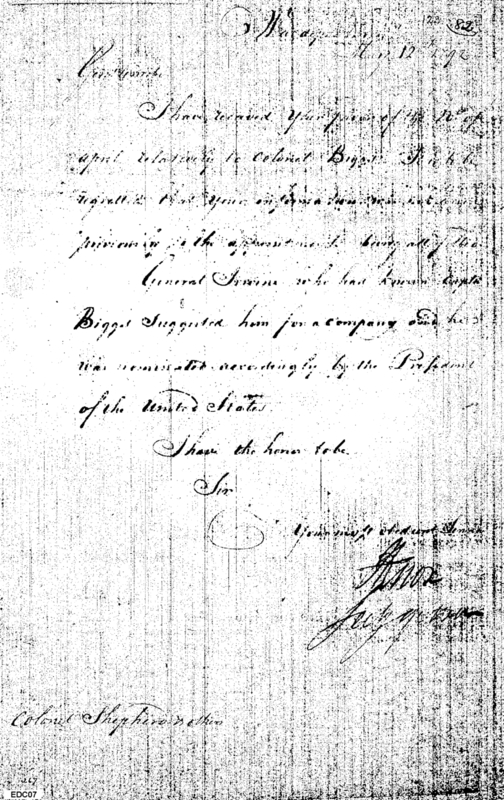 82
War dep
May 12th 1792
Gentlemen
I have received your favor of the 12th of
april relatively to Colonel Biggs. It is to be
regretted that your information was not
previously to the appointment being all
General Irvine who had known Captn
Biggs Suggested him for a company and he
was nominated accordingly by the President
of the United States
I have the honor to be
Sir
Your most obedient Serv
H Knox
Secy of War
Colonel Shepherd & others
EDC07